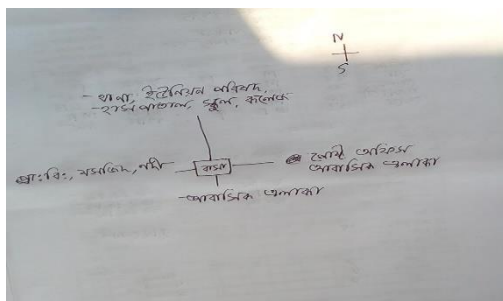 N
S
- থানা, ইউনিয়ন পরিষদ,
- হাসপাতাল, স্কুল, কলেজ
প্রা:বি:, মসজিদ, নদী
বাসা
পোষ্ট অফিস
আবাসিক এলাকা
- আবাসিক এলাকা